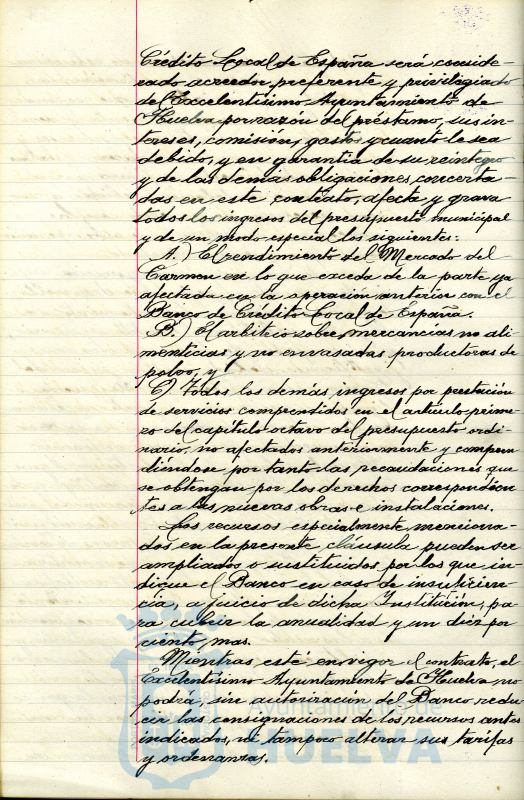 Crédito Local de España será conside-
rado acreedor preferente y privilegiado
del Excelentísimo Ayuntamiento de
Huelva por razón del préstamo, sus in-
tereses, comisión, gastos y cuanto le sea
debido, y en garantía de su reintegro
y de las demás obligaciones concerta-
das en este contrato, afecta y grava
todos los ingresos del presupuesto municipal
y de un modo especial los siguientes:
A.) El rendimiento del Mercado del
Carmen en lo que exceda de la parte ya
afectada en la operación anterior con el
Banco de Crédito Local de España.
B.) El arbitrio sobre mercancías no ali-
menticias y no envasadas productoras de
polvo, y
C) Todos los demás ingresos por prestación
de servicios comprendidos en el artículo prime-
ro del capítulo octavo del presupuesto ordi-
nario, no afectados anteriormente y compren
diéndose por tanto las recaudaciones que
se obtengan por los derechos correspondien
tes a las nuevas obras e instalaciones.
Los recursos especialmente menciona-
dos en la presente cláusula pueden ser
ampliados o sustituidos por los que in-
dique el Banco en caso de insuficien-
cia, a juicio de dicha Institución, pa-
ra cubrir la anualidad y un diez por
ciento, mas.
Mientras esté en vigor el contrato, el
Excelentísimo Ayuntamiento de Huelva no
podrá, sin autorización del Banco redu-
cir las consignaciones de los recursos antes
indicados, ni tampoco alterar sus tarifas
y ordenanzas.
Ayuntamiento de
HUELVA